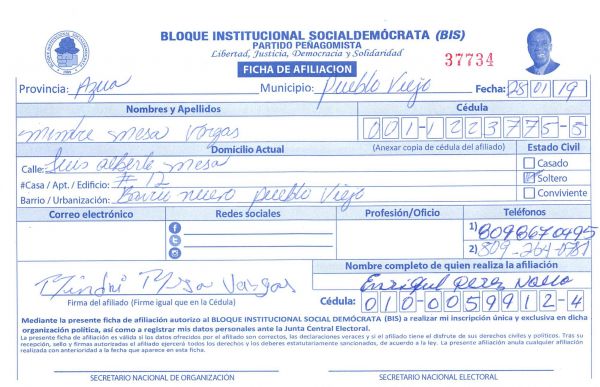 BLOQUE INSTITUCIONAL SOCIALDEMÓCRATA (BIS)
PARTIDO PEÑAGOMISTA
Libertad, Justicia, Democracia y Solidaridad
37734
FICHA DE AFILIACION
Provincia: Azua Municipio: Pueblo Viejo Fecha: 28 01 19
Nombres y Apellidos Cédula
mesa Vargas 001-1223775-5
Domicilio Actual (Anexar copia de cédula del afiliado) Estado Civil
Calle: Luis alberto mesa Casado
#Casa / Apt. / Edificio: # 12 Soltero
Barrio / Urbanización: Barrio nuevo pueblo Viejo Conviviente
Correo electrónico Redes sociales Profesión/Oficio Teléfonos
1) 809 8670495
2) 809-264-0781
Nombre completo de quien realiza la afiliación
Mesa Vargas Perez
Firma del afiliado (Firme igual que en la Cédula) Cédula: 010-0059912-4
Mediante la presente ficha de afiliación autorizo al BLOQUE INSTITUCIONAL SOCIAL DEMÓCRATA (BIS) a realizar mi inscripción única y exclusiva en dicha
organización política, así como a registrar mis datos personales ante la Junta Central Electoral.
La presente ficha de afiliación es válida si los datos ofrecidos por el afiliado son correctos, las declaraciones veraces y si el afiliado tiene el disfrute de sus derechos civiles y políticos. Tras su
recepción, sello y firmas autorizados el afiliado ejercerá todos los derechos y los deberes estatutariamente sancionados, de acuerdo a la ley. La presente afiliación anula cualquier afiliación
realizada con anterioridad a la fecha que aparece en esta ficha.
SECRETARIO NACIONAL DE ORGANIZACIÓN SECRETARIO NACIONAL ELECTORAL